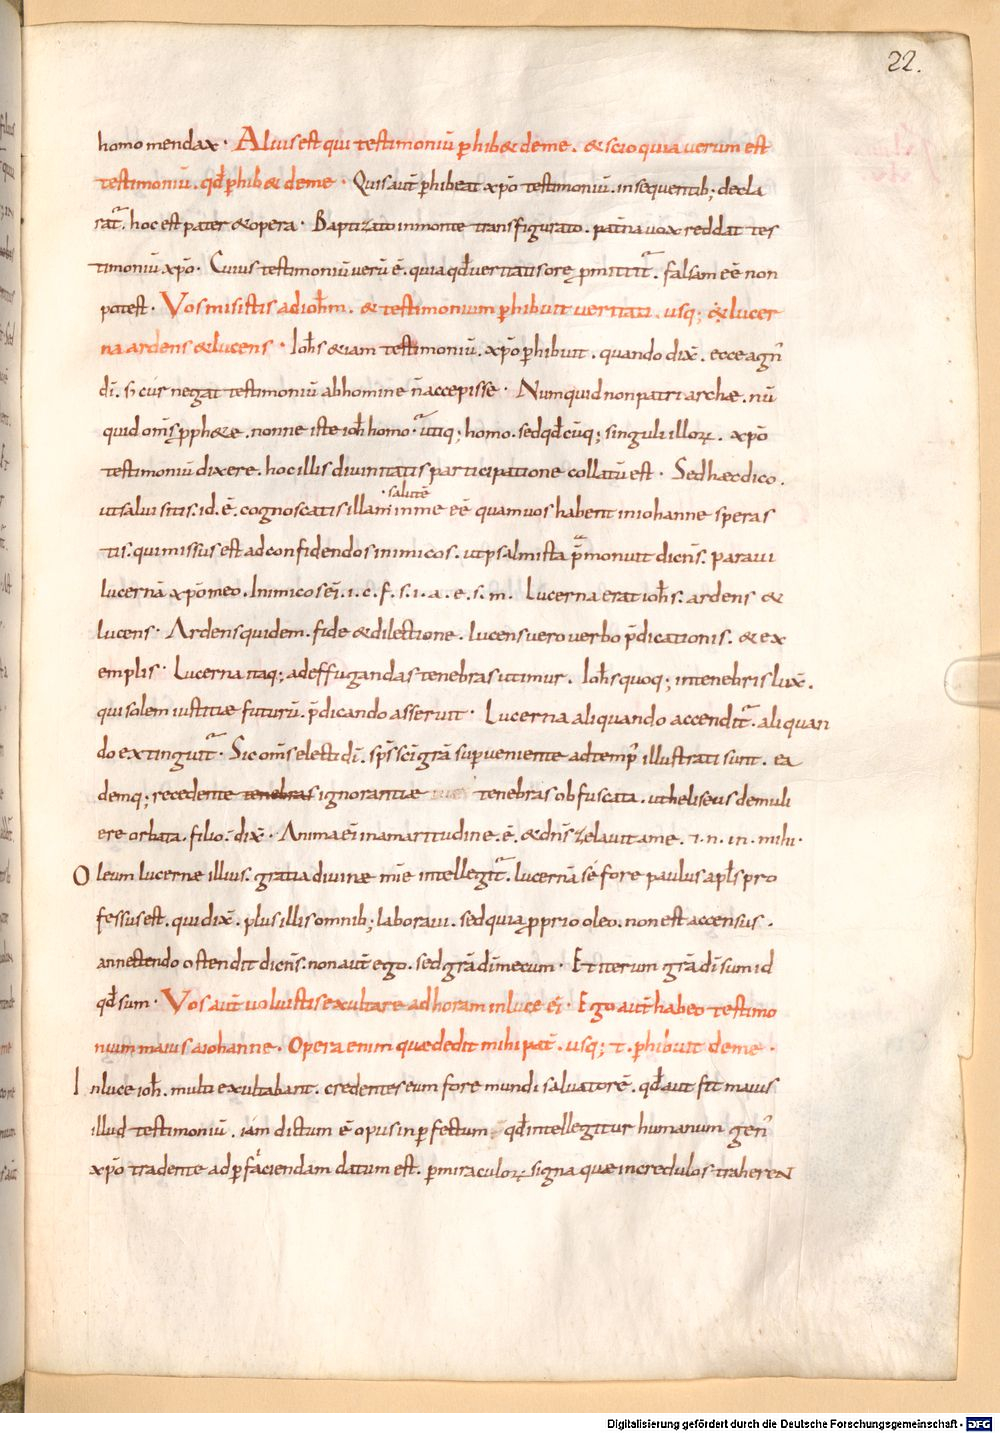 22.
homo mendax · Alius est qui testimoniū ꝑhib& de me . & scio quia uerum est
testimoniū . qđ ꝑhib& de me · Quis aūt ꝑhibeat xp̄o testimoniū . insequentib; decla
rat᷑ . hoc est pater & opera · Baptizato in monte transfigurato . pat̄na uox reddat tes
timoniū xp̄o · Cuius testimoniū uerū ē . quia qđ ueritatis orę ꝓmittit᷑ . falsam eē non
potest · Vos misistis ad ioh̄m . & testimonium ꝑhibuit ueritati . usq; & lucer
na ardens & lucens · Ioh̄s &iam testimoniū . xp̄o ꝑhibuit . quando dix̄ . ecce agn̄
dī . s; cur negat testimoniū ab homine n̄ accepisse · Numquid non patriarchæ . nū
quid om̄s ꝓph&e . nonne iste ioh̄ homo · utiq; homo . sed qđcūq; singuli illoꝝ . xp̄o
testimoniū dixere . hoc illis diuinitatis participatione collatū est · Sed hæc dico .
· salutē
ut salui sitis . id . ē . cognoscatis illam in me eē quam uos habent in iohanne speras
tis . qui missus est ad confidendos inimicos . ut psalmista p̄monuit dicn̄s . paraui
lucernā xp̄o meo . Inimicos eī . i . c . f . s . i . a . e . s . m . Lucerna erat ioh̄s . ardens &
lucens · Ardens quidem . fide & dilectione . lucens uero uerbo p̄dicationis . & ex
emplis · Lucerna itaq; ad effugandas tenebras utimur . Ioh̄s quoq; in tenebris lux̄ .
qui solem iustitiæ futurū . p̄dicando asseruit · Lucerna aliquando accendit᷑ . aliquan
do extinguit᷑ · Sic om̄s electi dī . sp̄s scī grā superueniente ad temp᷒ illustrati sunt . ea
demq; recedente tenebras ignorantiæ tenebras obfuscata . ut heliseus de muli
ere orbata . filio . dix̄ · Anima eī in amaritudine . ē . & dn̄s zelauit a me . & . n . in . mihi ·
Oleum lucernæ illius . gratia diuinæ mīe intellegit᷑ . lucernā sē fore paulus apl̄s pro
fessus est . qui dix̄ . plus illis omnib; laboraui . sed quia ꝓprio oleo . non est accensus .
annectendo ostendit dicn̄s . non aūt ego . sed grā dī mecum · Et iterum grā dī sum id
qđ sum · Vos aūt uoluistis exultare ad horam in luce eī · Ego aūt habeo testimo
nium maius a iohanne · Opera enim quæ dedit mihi pat̄ . usq; t . ꝑhibuit de me ·
In luce ioh̄ . multi exultabant . credentes eum fore mundi saluatorē . qđ aūt sit maius
illud testimoniū . iam dictum ē opus in ꝑfectum . qđ intellegitur humanum gen᷒
xp̄o tradente ad ꝑfaciendam datum est . ꝑ miraculoꝝ signa quæ incredulos traheren
Digitalisierung gefördert durch die Deutsche Forschungsgemeinschaft - DFG